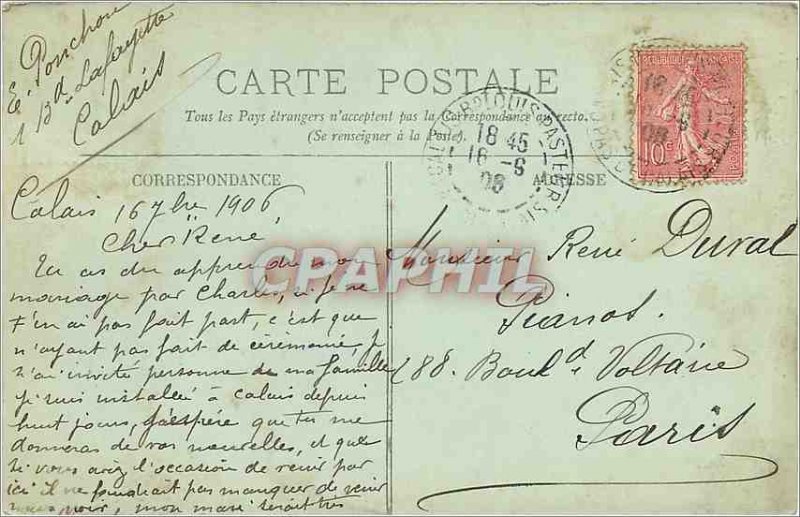 E. Ponchou
1 Bd Lafayette
Calais
CARTE POSTALE
Tous les Pays étrangers n'acceptent pas la Correspondance au recto.
(Se renseigner à la Poste).
CORRESPONDANCE
ADRESSE
REPUBLIQUE FRANÇAISE
10c
CALAIS Bd LOUIS PASTEUR
18 45
16 -9
06
Calais 16 7bre 1906
Cher René,
Tu as du apprendre mon
mariage par Charles, si je ne
t'en ai pas fait part, c'est que
n'ayant pas fait de cérémonie, je
n'ai invité personne de ma famille
je suis installée à Calais depuis
huit jours, j'espère que tu me
donneras de vos nouvelles, et que
si vous aviez l'occasion de venir par
ici il ne faudrait pas manquer de venir
nous voir, mon mari serait très
Monsieur René Duval
Pianos.
188. Bould Voltaire
Paris
CPARAPHIL